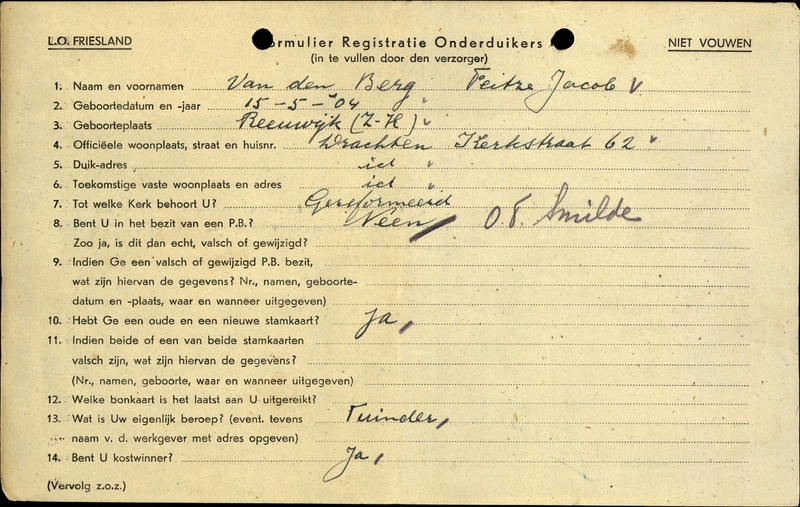 L.O. FRIESLAND
Formulier Registratie Onderduikers
NIET VOUWEN
(in te vullen door den verzorger)
1. Naam en voornamen Van den Berg Feitze Jacob
2. Geboortedatum en -jaar 15-5-'04
3. Geboorteplaats Reeuwijk (Z-H)
4. Officiëele woonplaats, straat en huisnr. Drachten Kerkstraat 62
5. Duik-adres id
6. Toekomstige vaste woonplaats en adres id
7. Tot welke Kerk behoort U? Gereformeerd
8. Bent U in het bezit van een P.B.? Neen O.T. Smilde
Zoo ja, is dit dan echt, valsch of gewijzigd?
9. Indien Ge een valsch of gewijzigd P.B. bezit,
wat zijn hiervan de gegevens? Nr., namen, geboorte-
datum en -plaats, waar en wanneer uitgegeven)
10. Hebt Ge een oude en een nieuwe stamkaart? Ja,
11. Indien beide of een van beide stamkaarten
valsch zijn, wat zijn hiervan de gegevens?
(Nr., namen, geboorte, waar en wanneer uitgegeven)
12. Welke bonkaart is het laatst aan U uitgereikt?
13. Wat is Uw eigenlijk beroep? (event. tevens Tuinder,
naam v. d. werkgever met adres opgeven)
14. Bent U kostwinner? Ja,
(Vervolg z.o.z.)